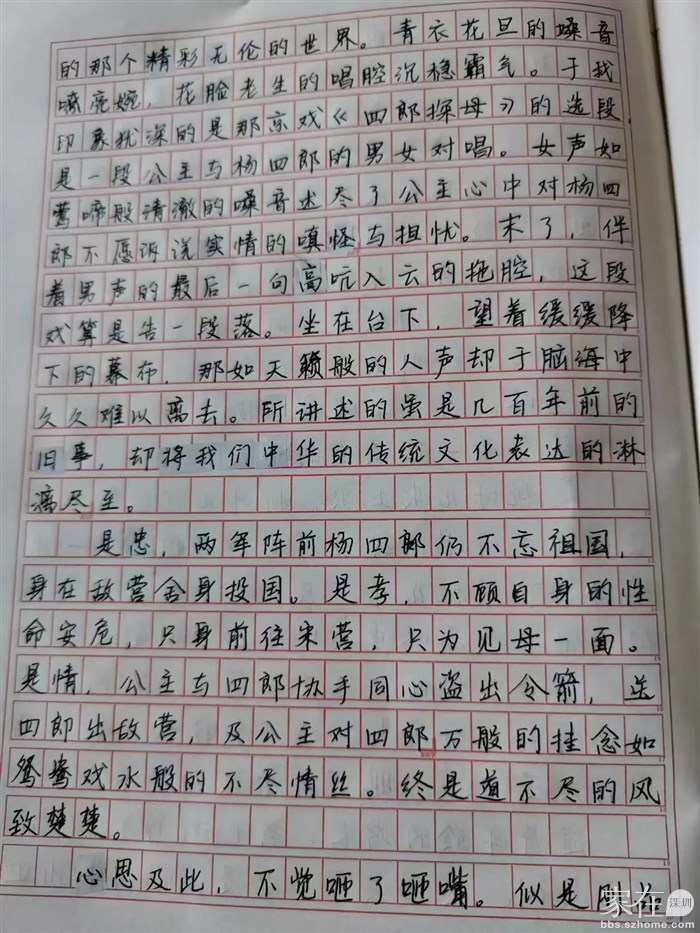 的那个精彩无伦的世界。青衣花旦的嗓音
嘹亮婉，花脸老生的唱腔沉稳霸气。于我
印象犹深的是那京戏《四郎探母》的选段，
是一段公主与杨四郎的男女对唱。女声如
莺啼般清澈的嗓音述尽了公主心中对杨四
郎不愿诉说实情的嗔怪与担忧。末了，伴
着男声的最后一句高吭入云的拖腔，这段
戏算是告一段落。坐在台下，望着缓缓降
下的幕布，那如天籁般的人声却于脑海中
久久难以离去。所讲述的虽是几百年前的
旧事，却将我们中华的传统文化表达的淋
漓尽至。
是忠，两军阵前杨四郎仍不忘祖国，
身在敌营舍身投国。是孝，不顾自身的性
命安危，只身前往宋营，只为见母一面。
是情，公主与四郎协手同心盗出令箭，送
四郎出敌营，及公主对四郎万般的挂念如
鸳鸯戏水般的不尽情丝。终是道不尽的风
致楚楚。
心思及此，不觉咂了咂嘴。似是
家在深圳
bbs.szhome.com